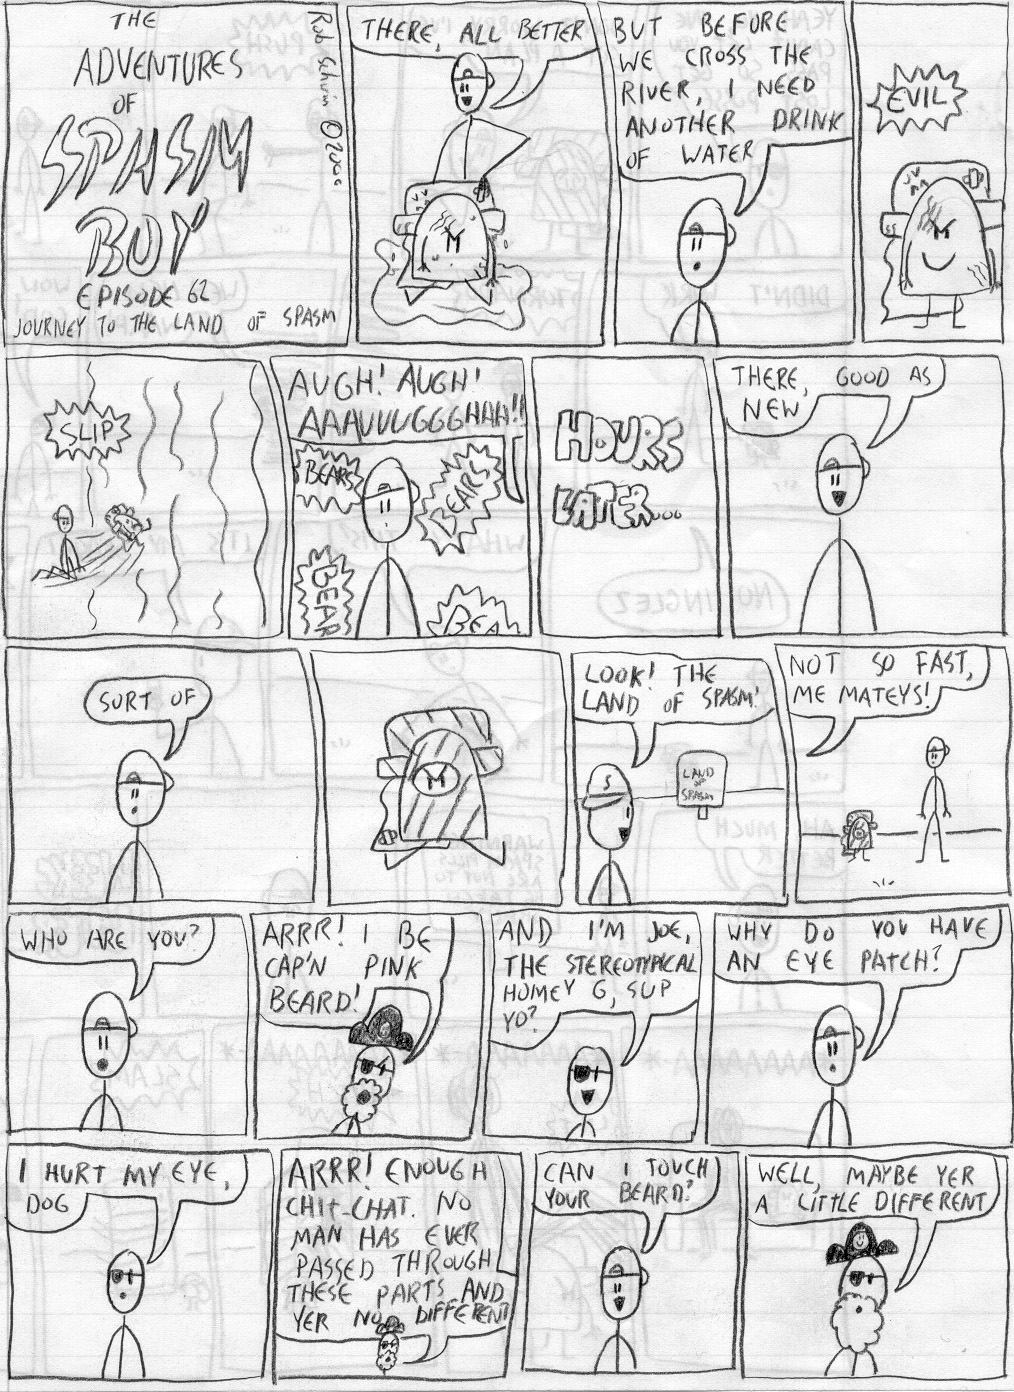 THE
ADVENTURES
OF
SPASM
BOY
EPISODE 62
JOURNEY TO THE LAND OF SPASM
THERE, ALL BETTER
M
BUT BEFORE
WE CROSS THE
RIVER, I NEED
ANOTHER DRINK
OF WATER
EVIL
M
SLIP
AUGH! AUGH!
AAAUUUGGGHHH!!
BEARS
BEARS
BEAR
BEA
HOURS
LATER...
THERE, GOOD AS
NEW
SORT OF
M
LOOK! THE
LAND OF SPASM!
S
LAND
OF
SPASM
NOT SO FAST,
ME MATEYS!
WHO ARE YOU?
ARRR! I BE
CAP'N PINK
BEARD!
AND I'M JOE,
THE STEREOTYPICAL
HOMEY G, SUP
YO?
WHY DO YOU HAVE
AN EYE PATCH?
I HURT MY EYE,
DOG
ARRR! ENOUGH
CHIT-CHAT. NO
MAN HAS EVER
PASSED THROUGH
THESE PARTS AND
YER NO DIFFERENT
CAN I TOUCH
YOUR BEARD?
WELL, MAYBE YER
A LITTLE DIFFERENT